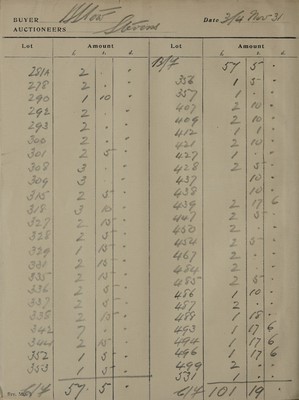 BUYER
AUCTIONEERS Stevens
Date 3/4 Nov 31
Lot Amount Lot Amount
£ s. d. £ s. d.
B/f 57 5 "
251A 2 " "
278 2 " "
290 1 10 "
292 2 " "
293 2 " "
300 2 " "
301 2 5 "
308 3 " "
309 3 " "
315 2 5 "
318 3 10 "
327 2 15 "
328 2 5 "
329 1 15 "
331 2 15 "
335 2 15 "
336 2 5 "
337 2 5 "
338 2 15 "
342 7 " "
344 2 15 "
352 1 5 "
353 1 5 "
C/f 57 5 "
356 1 5 "
357 1 " "
407 2 10 "
409 2 10 "
412 1 1 "
421 2 10 "
427 1 " "
428 2 5 "
437 10 "
438 10 "
439 2 17 6
447 2 5 "
450 2 " "
454 2 5 "
467 2 " "
484 2 " "
485 2 5 "
486 1 10 "
487 2 " "
488 1 15 "
493 1 17 6
494 1 17 6
496 1 17 6
499 2 " "
531 1 " "
C/f 101 19 "